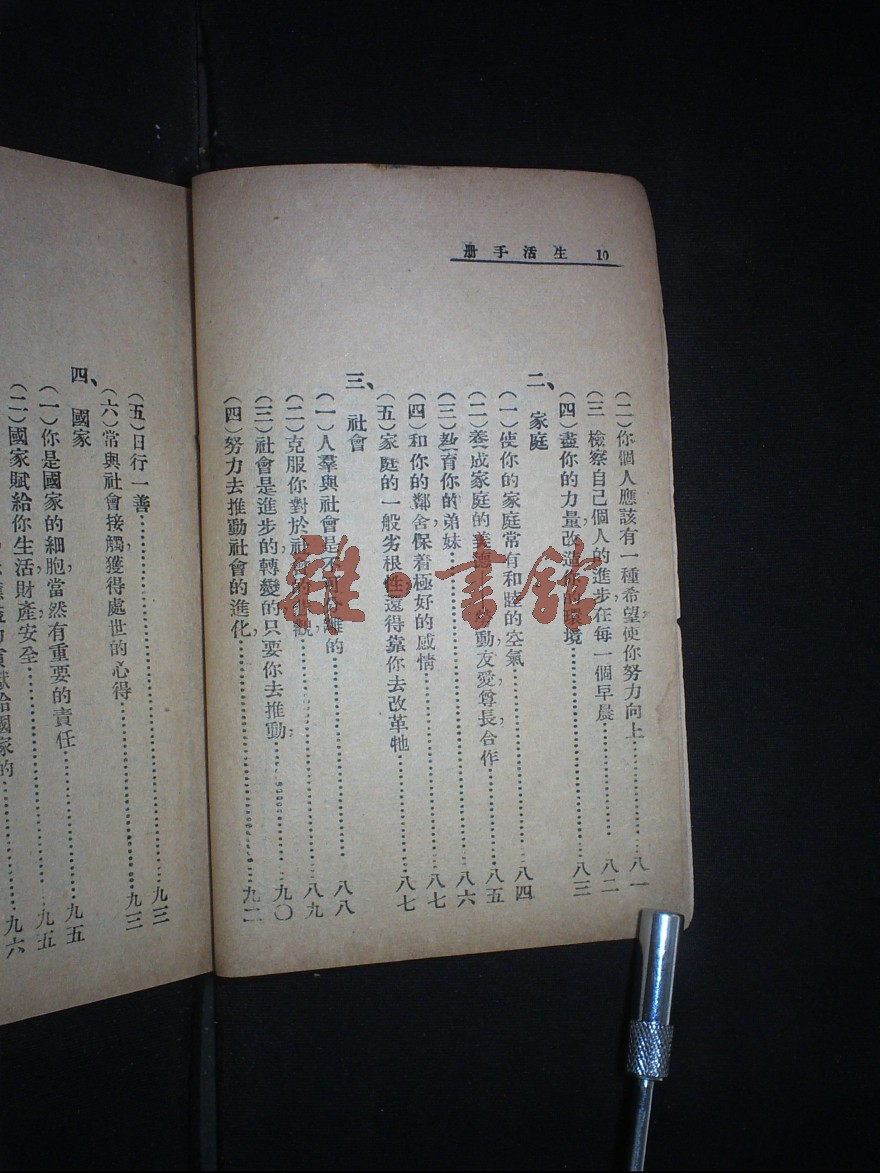 10 生活手册
(二)你個人應該有一種希望使你努力向上……八一
(三)檢察自己個人的進步在每一個早晨……八二
(四)盡你的力量改造你的環境……八三
二、家庭
(一)使你的家庭常有和睦的空氣……八四
(二)養成家庭的美德,勞動,友愛,尊長,合作……八五
(三)敎育你的弟妹……八六
(四)和你的鄰舍保着極好的感情……八七
(五)家庭的一般劣根性還得靠你去改革牠……八七
三、社會
(一)人羣與社會是不可分離的……八八
(二)克服你對於社會的悲觀……八九
(三)社會是進步的,轉變的,只要你去推動……九〇
(四)努力去推動社會的進化……九二
(五)日行一善……九三
(六)常與社會接觸,獲得處世的心得……九三
四、國家……九五
(一)你是國家的細胞,當然有重要的責任……九五
(二)國家賦給你生活,財產,安全……九六
貢獻給國家的
雜·書館